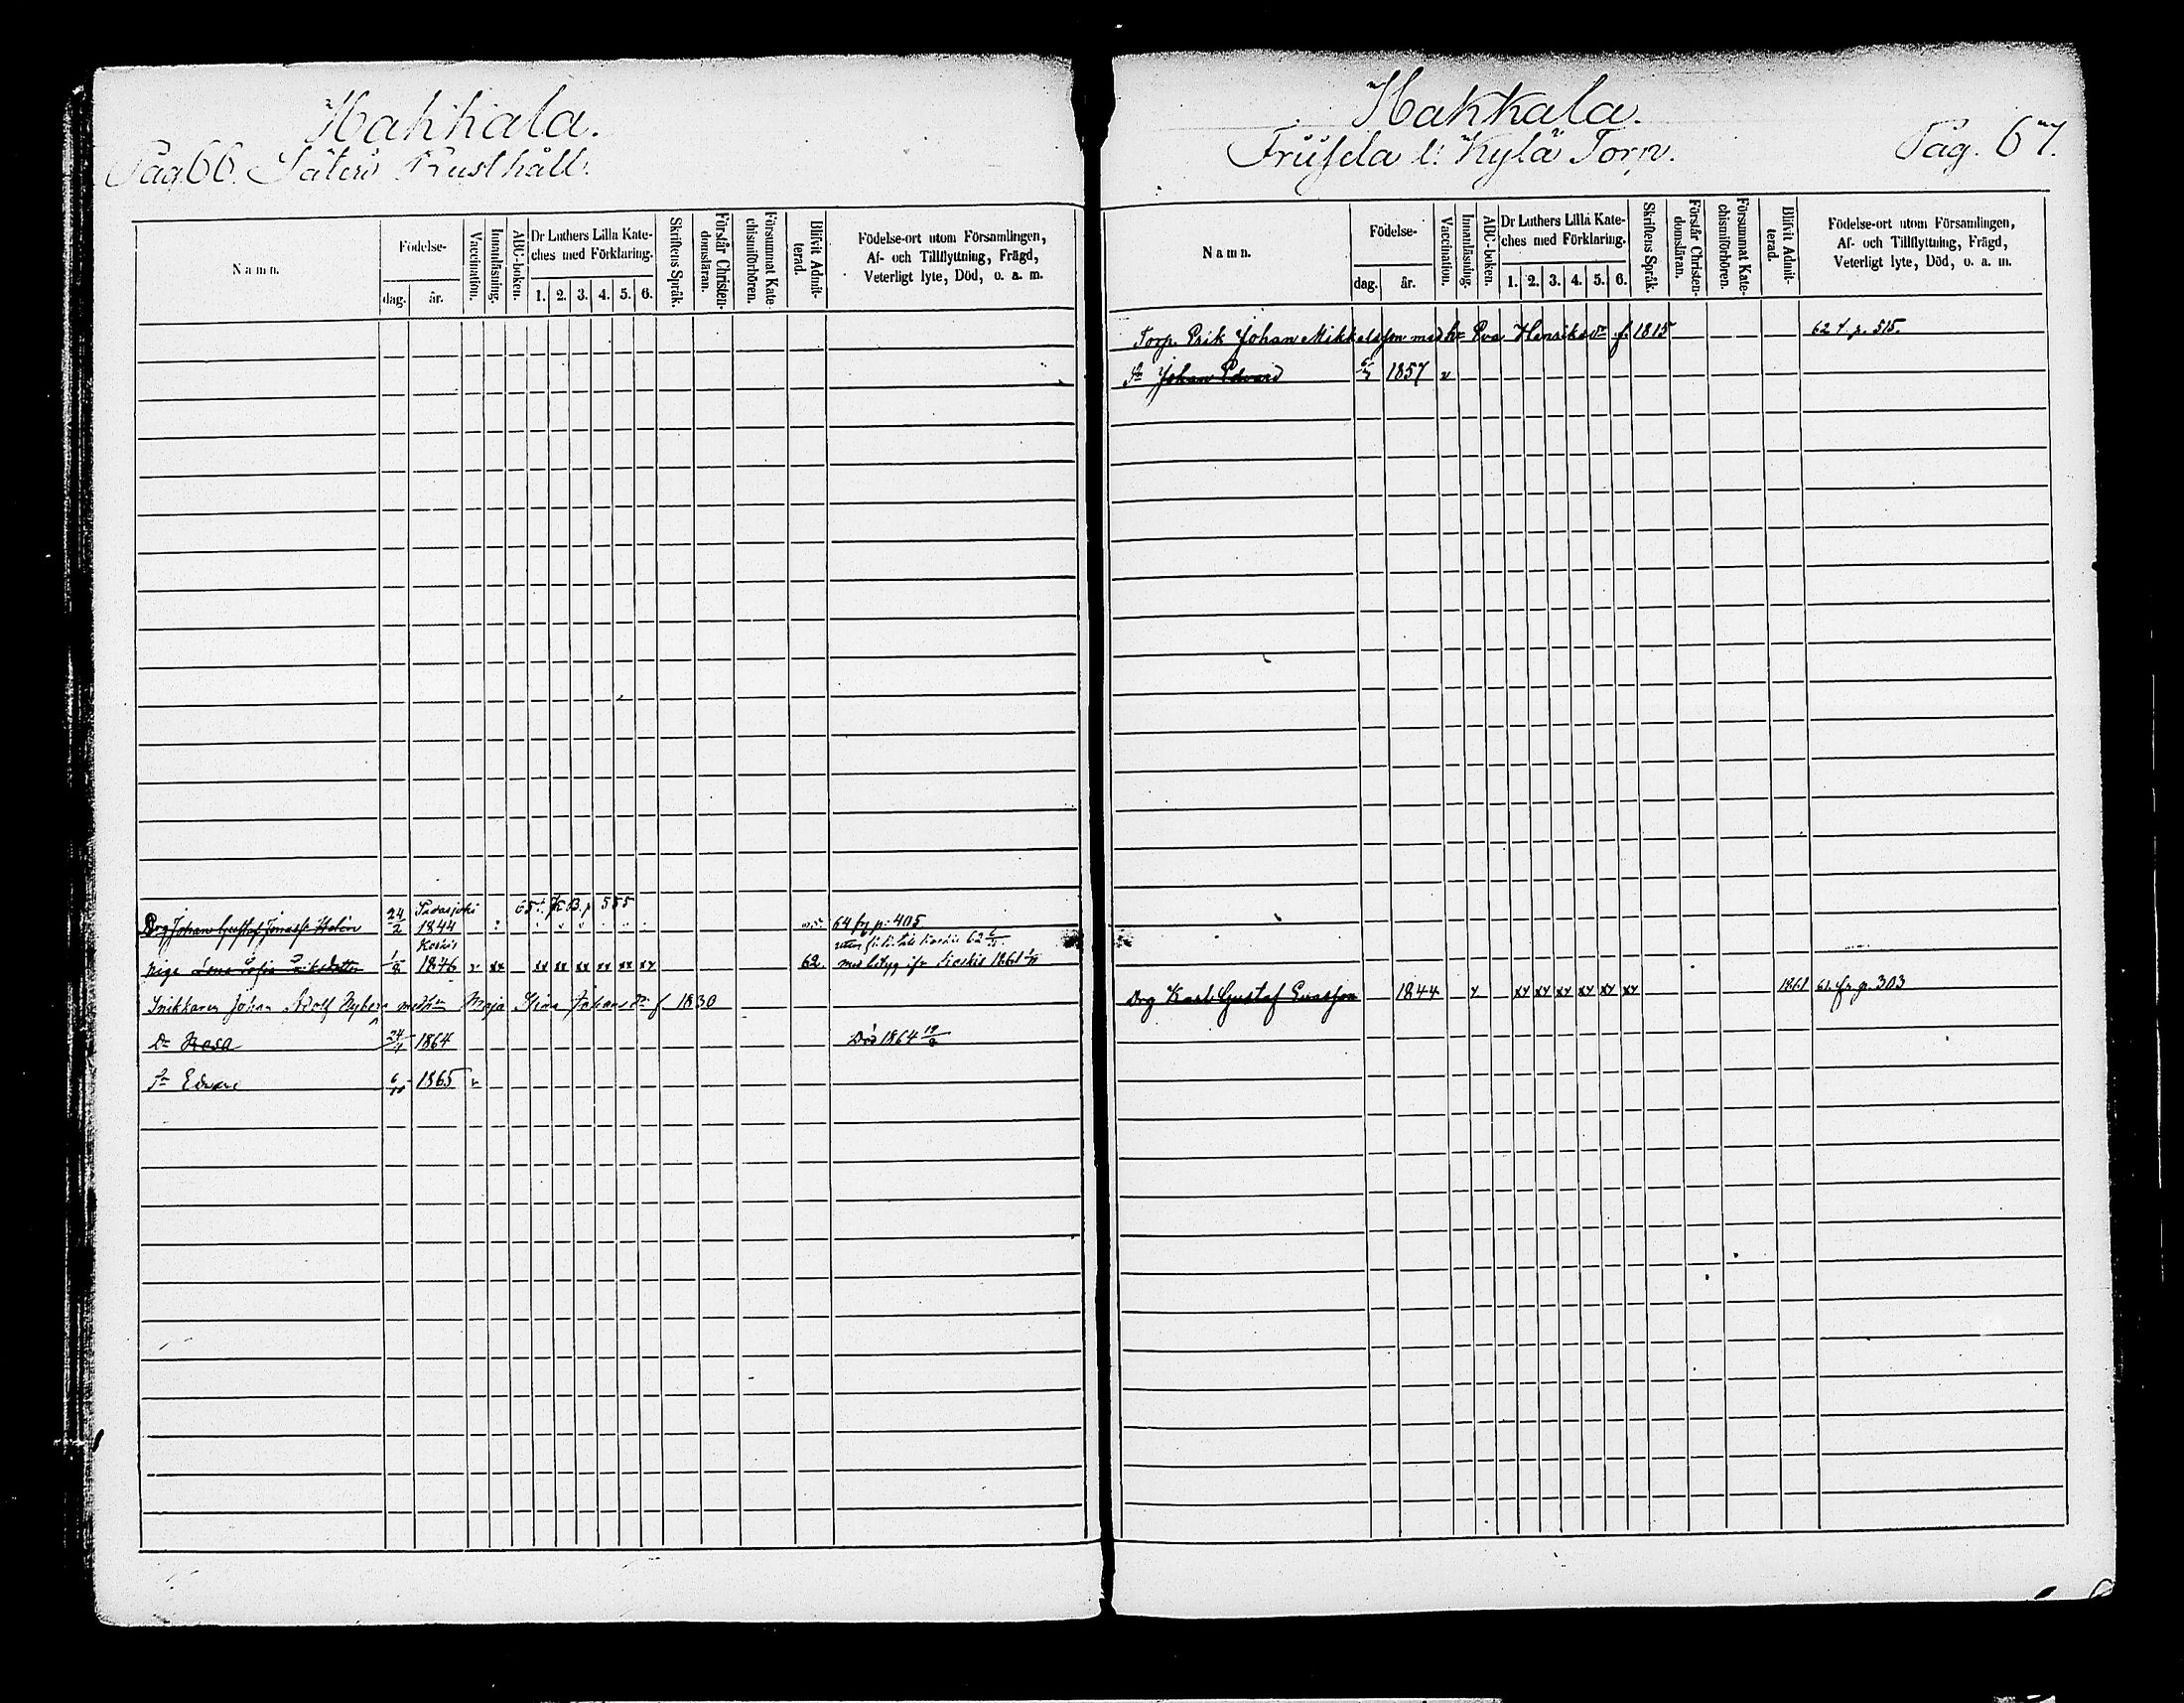 Hakkala.
Pag 66. Säteri Rusthåll.
Namn.
Födelse-
dag.
år.
Vaccination.
Innanläsning.
ABC-boken.
Dr Luthers Lilla Kate-
ches med Förklaring.
1. 2. 3. 4. 5. 6.
Skriftens Språk.
Förstår Christen-
domsläran.
Försummat Kate-
chismiförhören.
Blifvit Admit-
terad.
Födelse-ort utom Församlingen,
Af- och Tillflyttning, Frägd,
Veterligt lyte, Död, o. a. m.
Padasjoki 65 t. K B. p 555
Drg Johan Gustaf Jonass. Helin 24/2 1844 64 fr p. 405
Koskis
Piga Lena Sofia Eriksdotter 1/8 1846 v xx xx xx xx xx xx xx 62. med betyg ifr Koskis 1861
Inhikaren Johan Adolf Nyberg med hu Maja Stina Johansdr f 1830
Dr Rosa 24/1 1864 Död 1864 19/2
Sn Edvard 6/10 1865 v
Hakkala.
Frusila l: Kylä Torp.
Pag. 67.
Namn.
Födelse-
dag.
år.
Vaccination.
Innanläsning.
ABC-boken.
Dr Luthers Lilla Kate-
ches med Förklaring.
1. 2. 3. 4. 5. 6.
Skriftens Språk.
Förstår Christen-
domsläran.
Försummat Kate-
chismiförhören.
Blifvit Admit-
terad.
Födelse-ort utom Församlingen,
Af- och Tillflyttning, Frägd,
Veterligt lyte, Död, o. a. m.
Torp. Erik Johan Mikkelsson med h Eva Henriksdr f. 1815 62 t p. 515.
Sn Johan Edvard 1857 v
Drg Karl Gustaf Evasson 1844 x xx xx xx xx xx xx 1861 61. fr p. 303